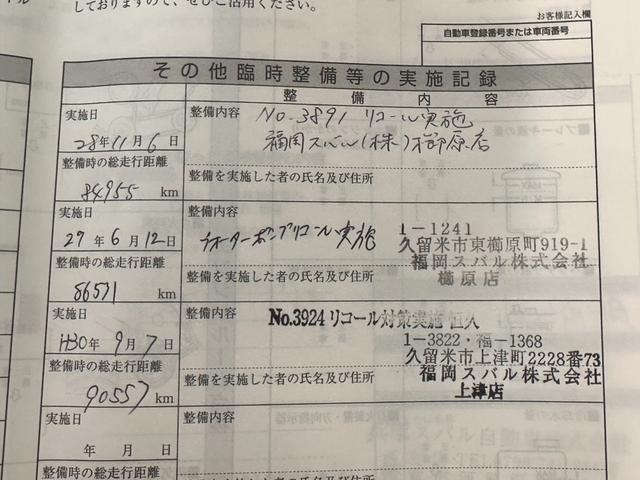 しておりますので、ぜひご活用ください。
お客様記入欄
自動車登録番号または車両番号
その他臨時整備等の実施記録
整備内容
実施日
28年11月6日
整備内容
No.3891 リコール実施
福岡スバル(株)櫛原店
整備時の総走行距離
84955 km
整備を実施した者の氏名及び住所
実施日
29年6月12日
整備内容
ウォーターポンプリコール実施
1-1241
久留米市東櫛原町919-1
福岡スバル株式会社
櫛原店
整備時の総走行距離
86531 km
整備を実施した者の氏名及び住所
実施日
H30年9月7日
整備内容
No.3924 リコール対策実施
1-3822・福-1368
久留米市上津町2228番73
福岡スバル株式会社
上津店
整備時の総走行距離
90557 km
整備を実施した者の氏名及び住所
実施日
年 月 日
整備内容
整備時の総走行距離